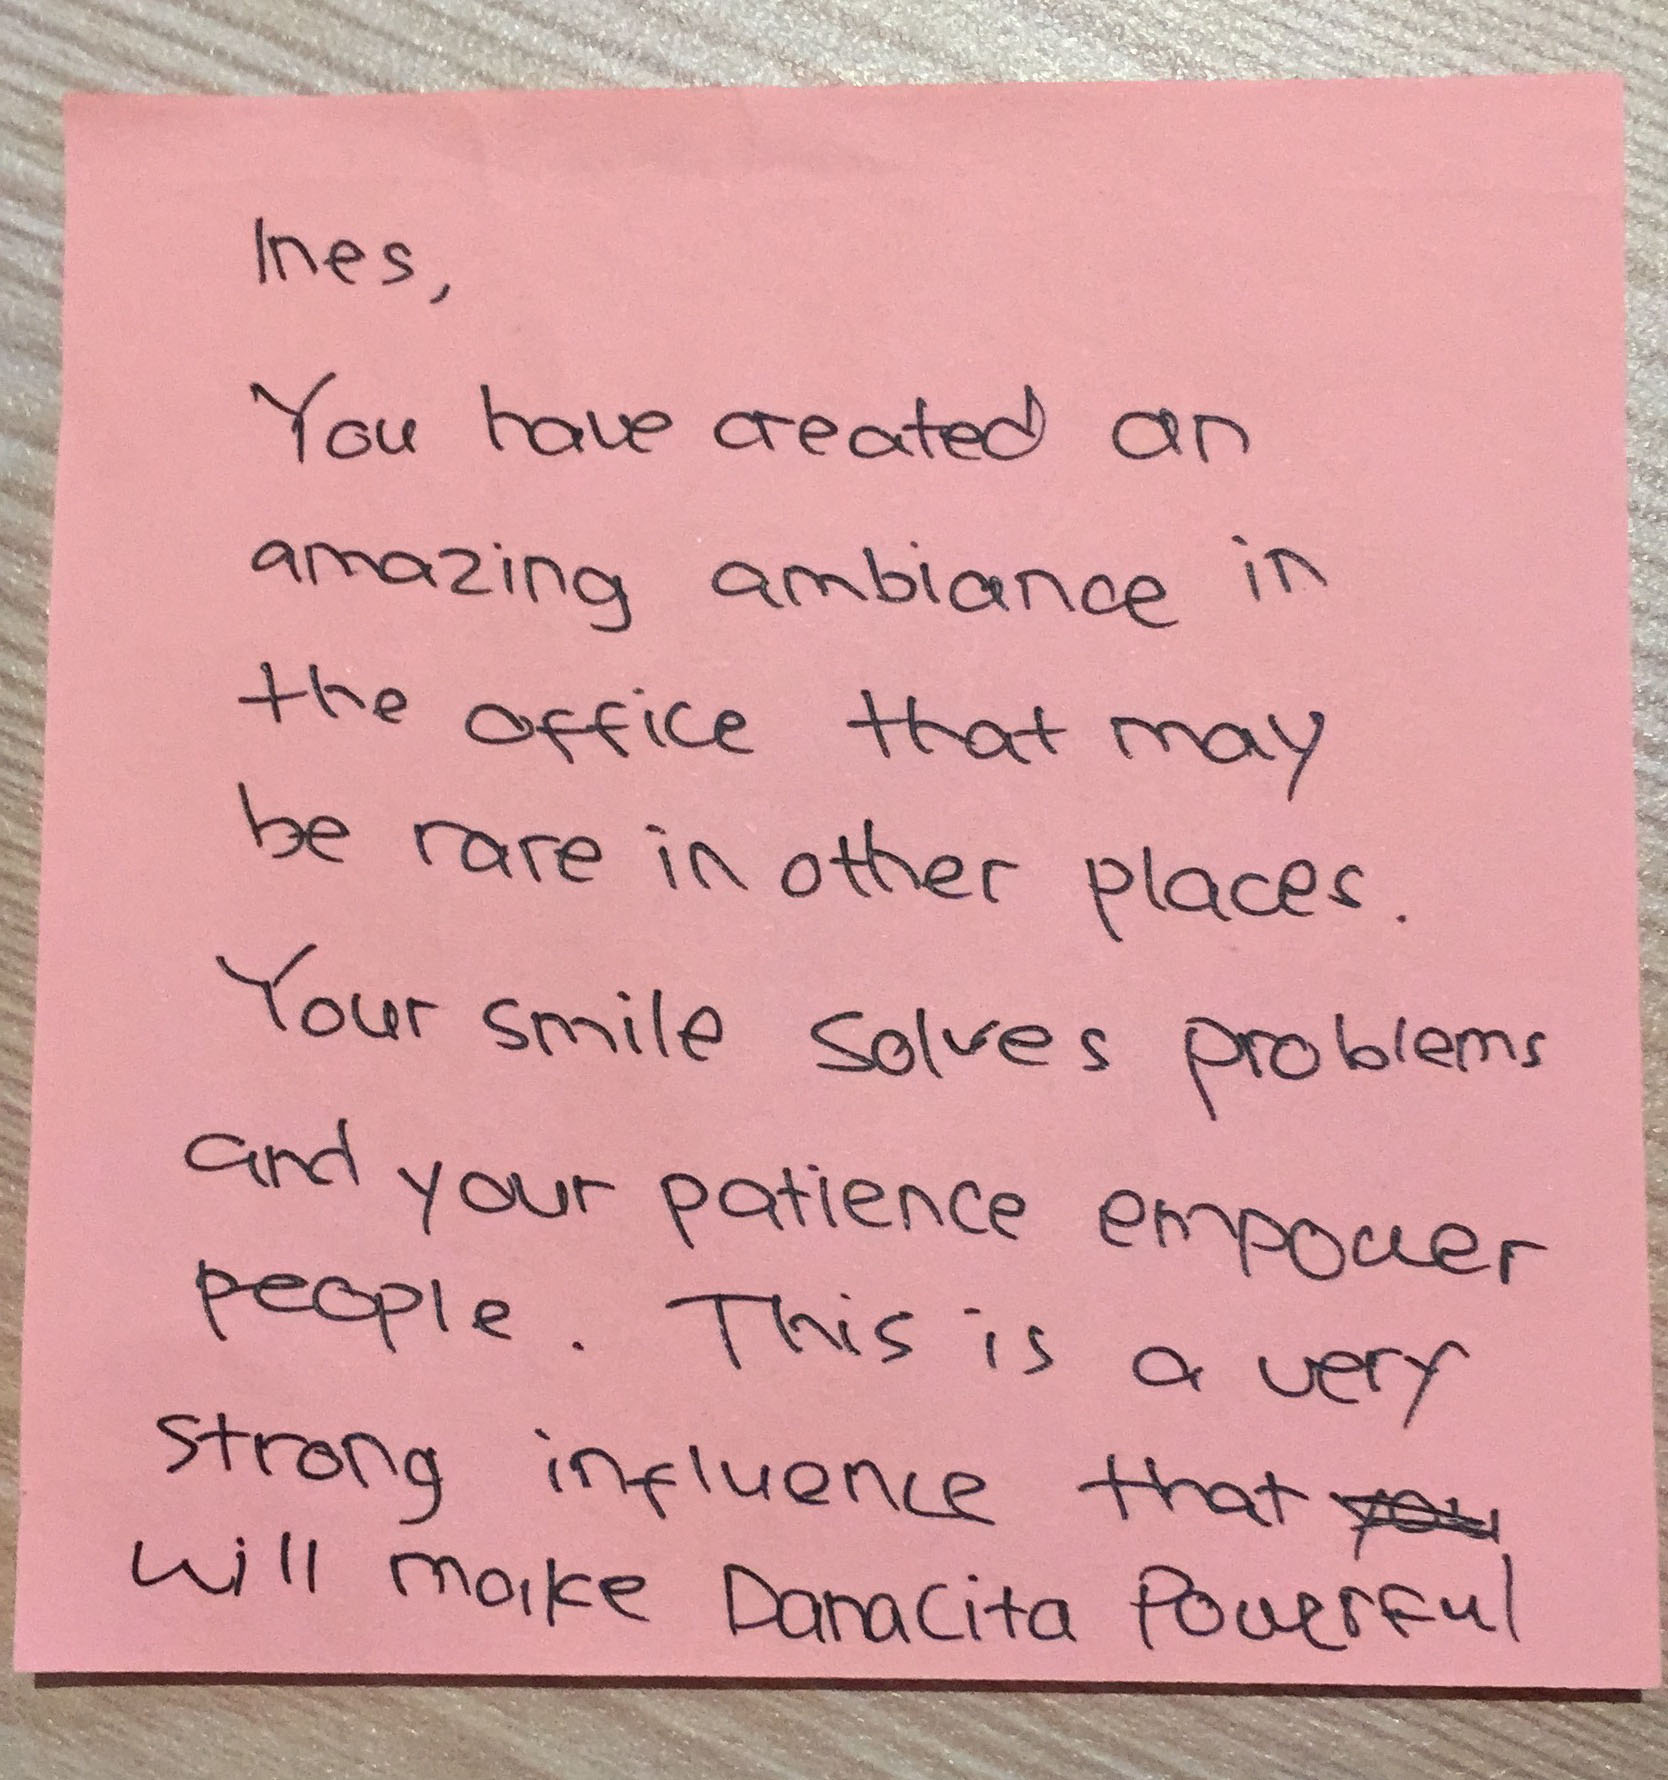 Ines,
You have created an
amazing ambiance in
the office that may
be rare in other places.
Your smile solves problems
and your patience empower
people. This is a very
strong influence that you
will make DanaCita Powerful